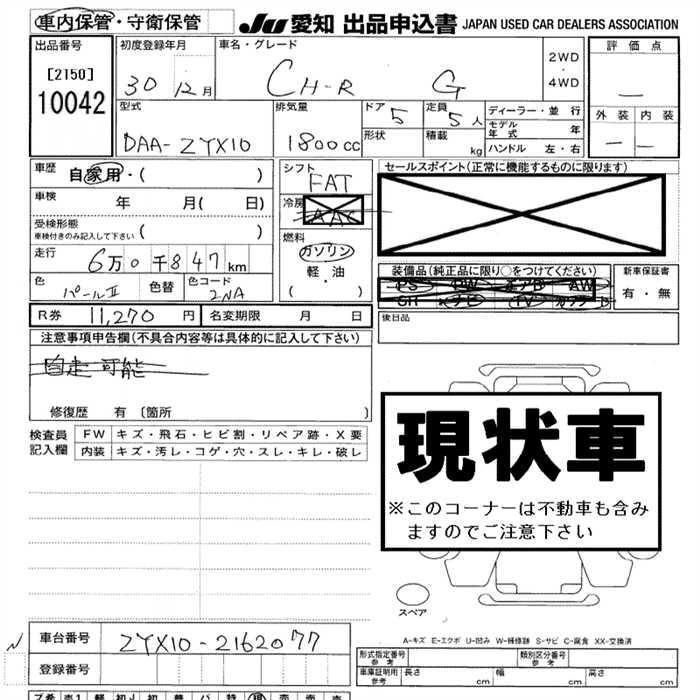 車内保管・守衛保管 JU 愛知 出品申込書 JAPAN USED CAR DEALERS ASSOCIATION
出品番号
[2150]
10042
初度登録年月
30 12月
車名・グレード
CH-R G
2WD
・
4WD
評価点
―
外装 内装
― ―
型式
DAA-ZYX10
排気量
1800cc
ドア 5
形状
定員 5人
積載 kg
ディーラー・並行
モデル年式 年
ハンドル 左・右
車歴
自家用・( )
車検 年 月( 日)
受検形態
車検付きのみ記入して下さい ( )
走行
6万0千847km
色
パールII
色替
色コード
2NA
シフト
FAT
冷房
AAC
燃料
ガソリン
軽・油
( ・ )
セールスポイント(正常に機能するものに限ります)
装備品(純正品に限り○をつけてください)
PS PW エアB AW
SR ナビ TV カワ
新車保証書
有・無
R券 11,270円 名変期限 月 日
後日品
注意事項申告欄(不具合内容等は具体的に記入して下さい)
自走可能
修復歴 有 〔箇所 〕
検査員
記入欄
FW キズ・飛石・ヒビ割・リペア跡・X要
内装 キズ・汚レ・コゲ・穴・スレ・キレ・破レ
現状車
※このコーナーは不動車も含み
ますのでご注意下さい
スペア
A-キズ E-エクボ U-凹み W-補修跡 S-サビ C-腐食 XX-交換済
車台番号 ZYX10-2162077
登録番号
形式指定番号
参考
類別区分番号
参考
車庫証明用
参考
長さ cm 幅 cm 高さ cm